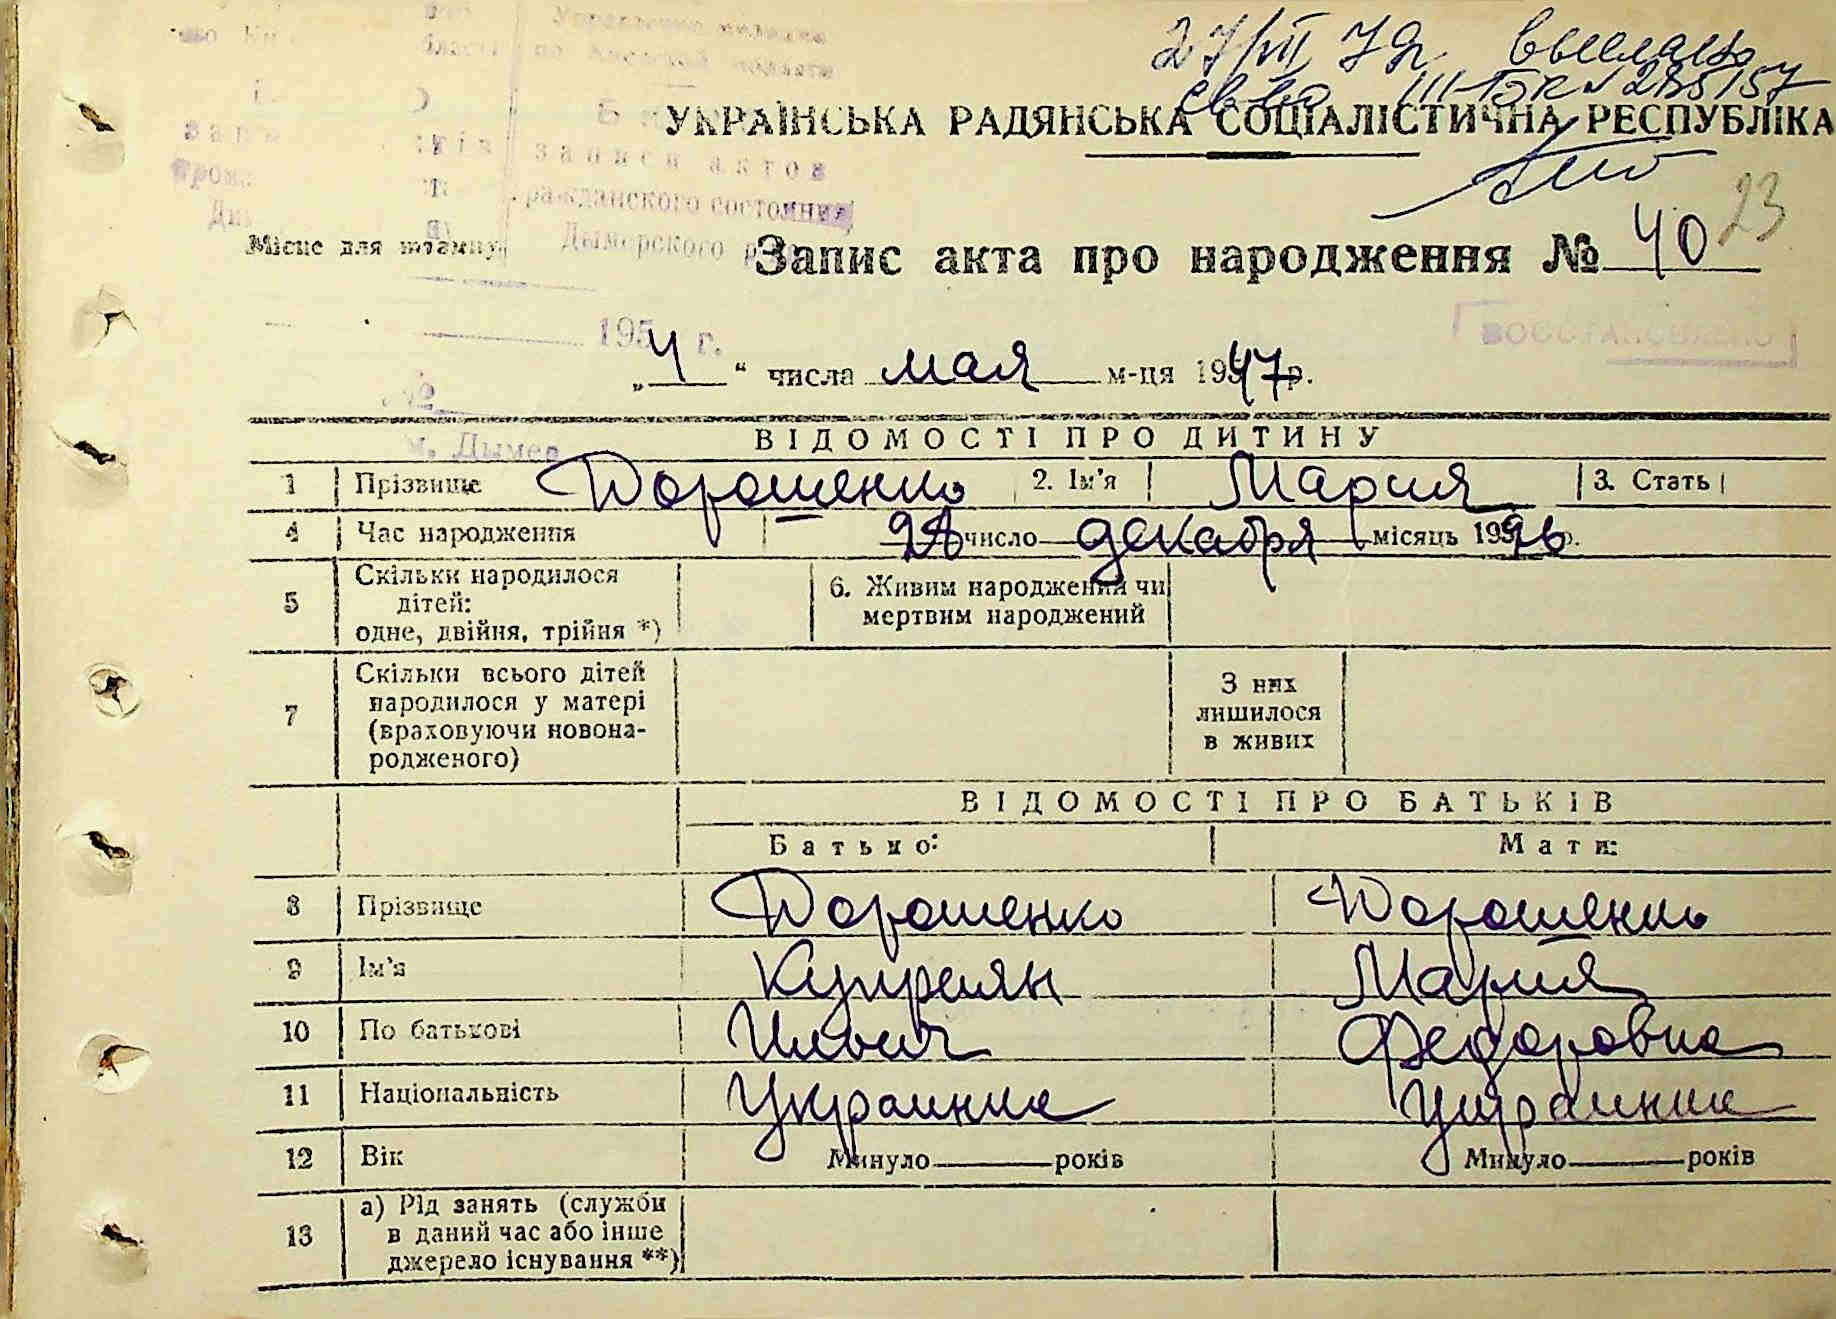 Управление
по Киевской области
записи актов
гражданского состояния
Дымерского
27/VII 79г. выслано
св-во III-БК № 285157
УКРАЇНСЬКА РАДЯНСЬКА СОЦІАЛІСТИЧНА РЕСПУБЛІКА
23
Місце для штампу
Запис акта про народження № 40
195 г.
ВОССТАНОВЛЕНО
„4“ числа мая м-ця 1947 р.
№
м. Дымер
ВІДОМОСТІ ПРО ДИТИНУ
1 Прізвище Дорошенко 2. Ім'я Мария 3. Стать
4 Час народження число декабря місяць 1946 р.
5 Скільки народилося дітей: одне, двійня, трійня *) 6. Живим народжений чи мертвим народжений
7 Скільки всього дітей народилося у матері (враховуючи новонародженого) З них лишилося в живих
ВІДОМОСТІ ПРО БАТЬКІВ
Батько: Мати:
8 Прізвище Дорошенко Дорошенко
9 Ім'я Куприян Мария
10 По батькові Ильич Федоровна
11 Національність Украинец Украинка
12 Вік Минуло років Минуло років
13 а) Рід занять (служби в даний час або інше джерело існування **)